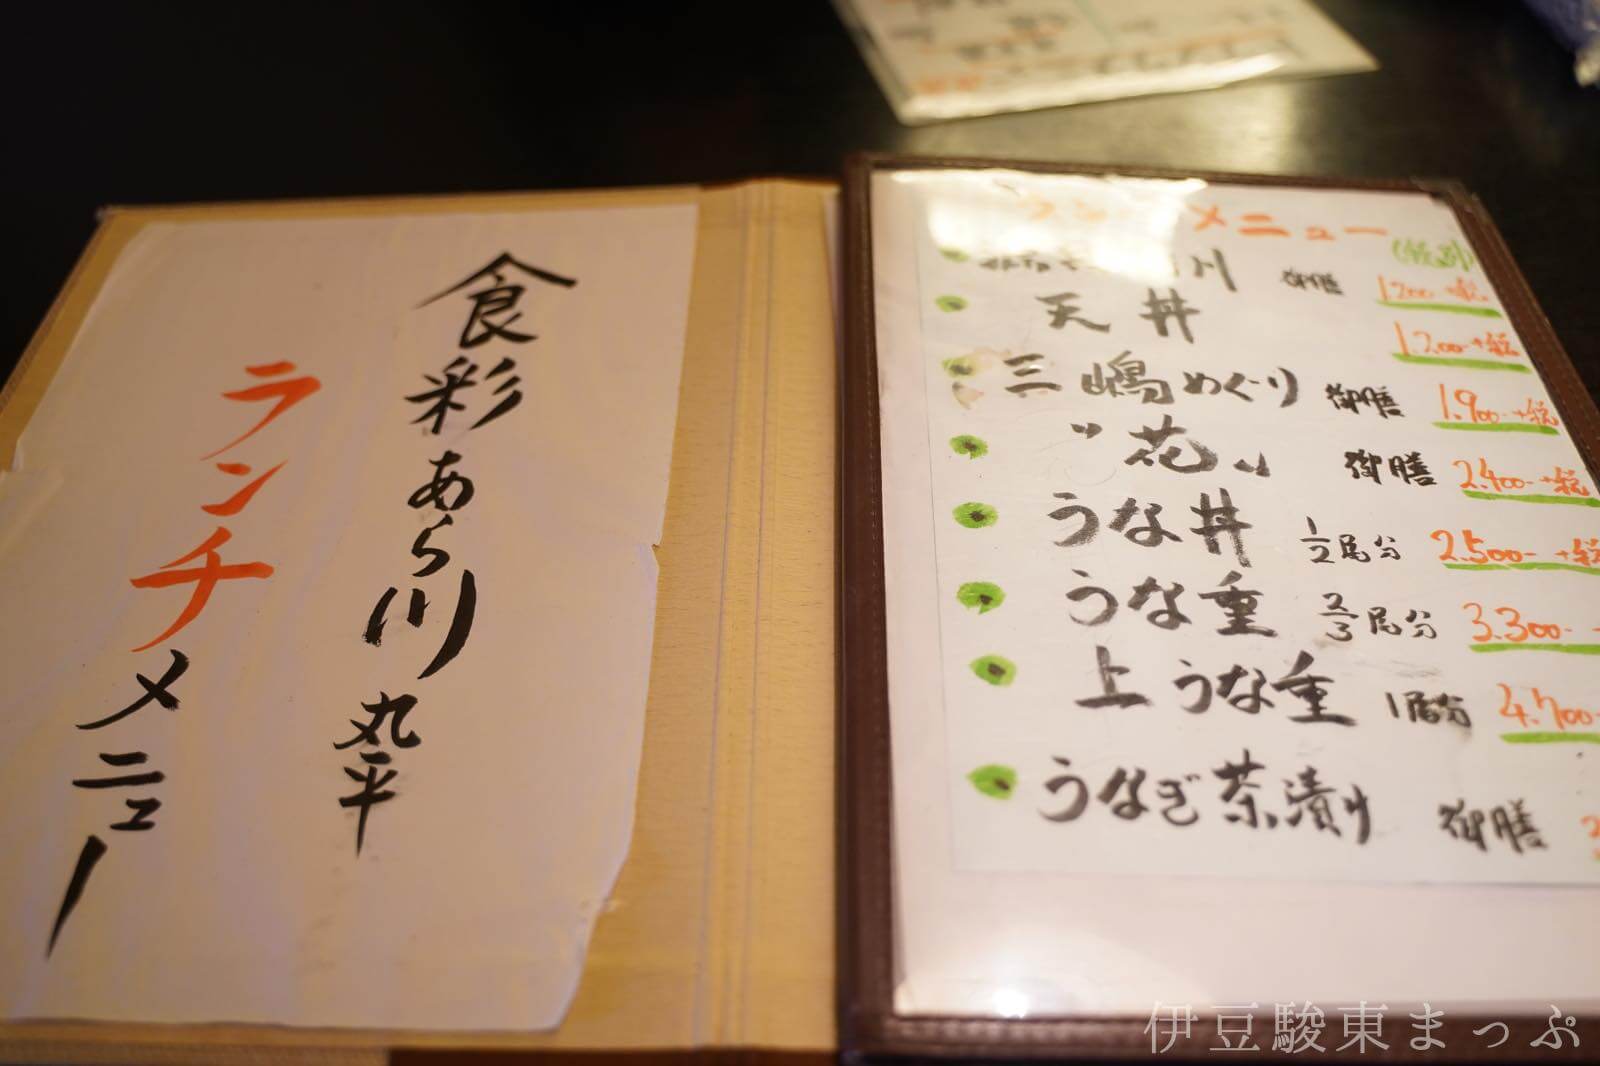 食彩あら川 丸平
ランチメニュー
メニュー
(税別)
川 御膳
天丼 1,200-+税
三嶋めぐり 御膳 1.900-+税
"花" 御膳 2.400-+税
うな丼 1/2尾分 2.500-+税
うな重 2/3尾分 3.300-
上うな重 1尾分 4.700-
うなぎ茶漬り 御膳
伊豆駿東まっぷ